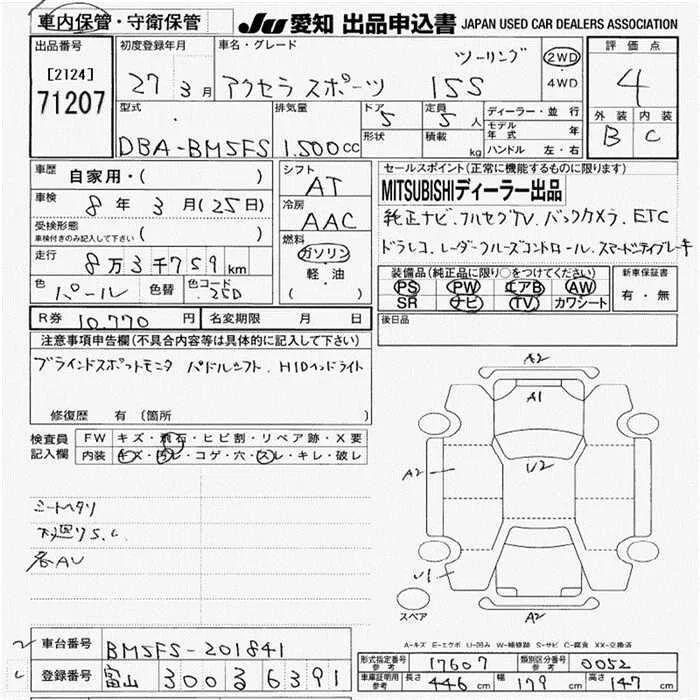 車内保管・守衛保管
JU 愛知 出品申込書 JAPAN USED CAR DEALERS ASSOCIATION
出品番号
[2124]
71207
初度登録年月
27 3月
車名・グレード
アクセラ スポーツ 15S ツーリング
2WD
・
4WD
評価点
4
外装 内装
B C
型式
DBA-BM5FS
排気量
1.500cc
ドア 5
形状
定員 5 人
積載 kg
ディーラー・並行
モデル年式 年
ハンドル 左・右
車歴
自家用・( )
車検
8年 3月(25日)
受検形態
車検付きのみ記入して下さい ( )
走行
8万3千759km
色 パール 色替 色コード 25D
シフト
AT
冷房
AAC
燃料
ガソリン
・
軽・油
( )
セールスポイント(正常に機能するものに限ります)
MITSUBISHIディーラー出品
純正ナビ.フルセグTV.バックカメラ.ETC
ドラレコ.レーダークルーズコントロール.スマートシティブレーキ
装備品(純正品に限り○をつけてください)
PS PW エアB AW
SR ナビ TV カワシート
新車保証書
有・無
後日品
R券 10,770円 名変期限 月 日
注意事項申告欄(不具合内容等は具体的に記入して下さい)
ブラインドスポットモニタ パドルシフト.HIDヘッドライト
修復歴 有(箇所 )
検査員
記入欄
FW キズ・飛石・ヒビ割・リペア跡・X要
内装 キズ・汚レ・コゲ・穴・スレ・キレ・破レ
シートヘタリ
下廻りS.C
各AU
A2
A1
A2
U2
U1
A2
スペア
A-キズ E-エクボ U-凹み W-補修跡 S-サビ C-腐食 XX-交換済
車台番号 BM5FS-201841
登録番号 富山 300 る 6391
形式指定番号 参考 17607 類別区分番号 参考 0052
車庫証明用 参考 長さ 446cm 幅 179cm 高さ 147cm